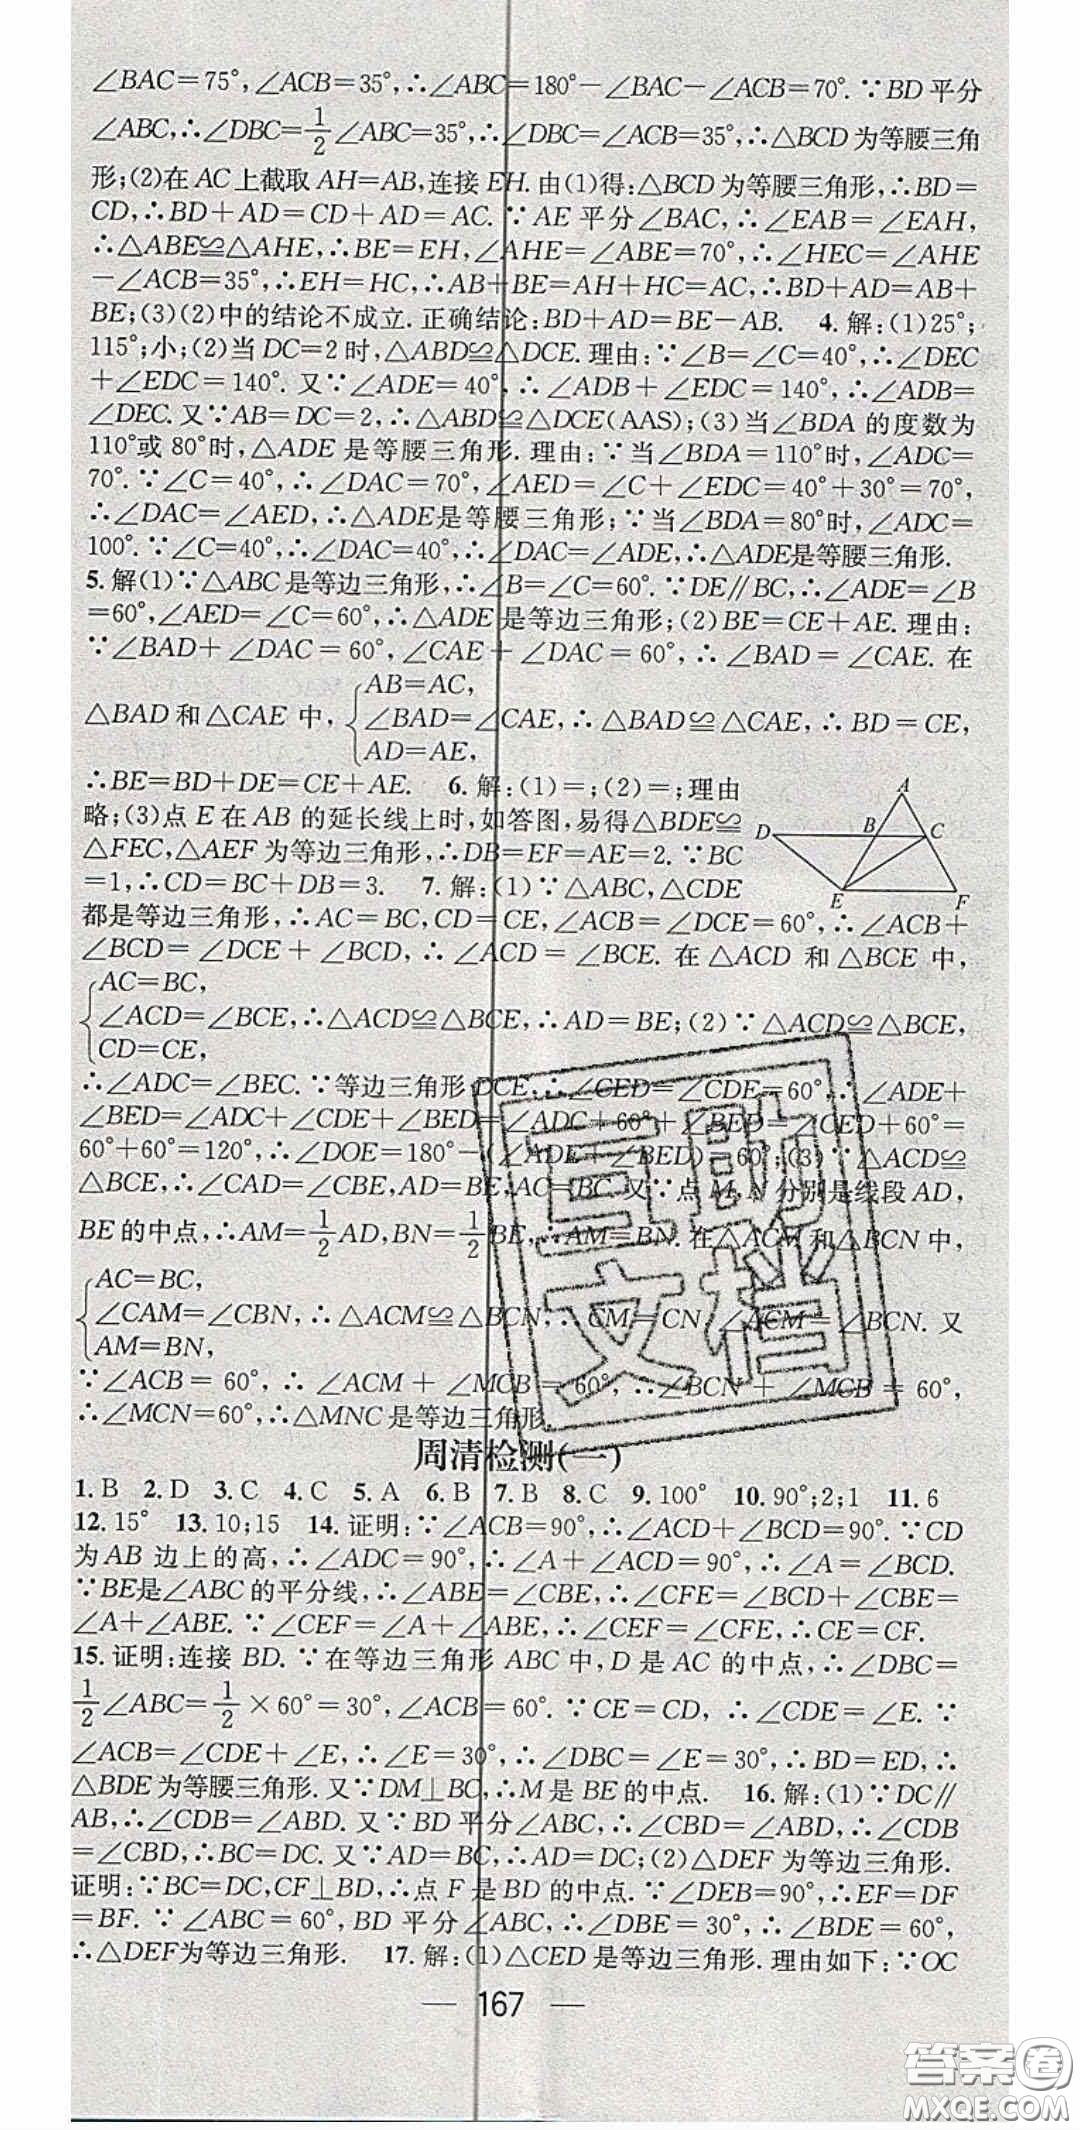 ∠BAC=75°,∠ACB=35°,∴∠ABC=180°-∠BAC-∠ACB=70°.∵BD平分
∠ABC,∴∠DBC=1/2∠ABC=35°,∴∠DBC=∠ACB=35°,∴△BCD为等腰三角
形;(2)在AC上截取AH=AB,连接EH.由(1)得:△BCD为等腰三角形,∴BD=
CD,∴BD+AD=CD+AD=AC.∵AE平分∠BAC,∴∠EAB=∠EAH,
∴△ABE≌△AHE,∴BE=EH,∠AHE=∠ABE=70°,∴∠HEC=∠AHE
-∠ACB=35°,∴EH=HC,∴AB+BE=AH+HC=AC,∴BD+AD=AB+
BE;(3)(2)中的结论不成立.正确结论:BD+AD=BE-AB. 4.解:(1)25°;
115°;小;(2)当DC=2时,△ABD≌△DCE.理由:∵∠B=∠C=40°,∴∠DEC
+∠EDC=140°.又∵∠ADE=40°,∴∠ADB+∠EDC=140°,∴∠ADB=
∠DEC.又∵AB=DC=2,∴△ABD≌△DCE(AAS);(3)当∠BDA的度数为
110°或80°时,△ADE是等腰三角形.理由:∵当∠BDA=110°时,∠ADC=
70°.∵∠C=40°,∴∠DAC=70°,∠AED=∠C+∠EDC=40°+30°=70°,
∴∠DAC=∠AED,∴△ADE是等腰三角形;∵当∠BDA=80°时,∠ADC=
100°.∵∠C=40°,∴∠DAC=40°,∴∠DAC=∠ADE,∴△ADE是等腰三角形.
5.解(1)∵△ABC是等边三角形,∴∠B=∠C=60°.∵DE∥BC,∴∠ADE=∠B
=60°,∠AED=∠C=60°,∴△ADE是等边三角形;(2)BE=CE+AE.理由:
∵∠BAD+∠DAC=60°,∠CAE+∠DAC=60°,∴∠BAD=∠CAE.在
△BAD和△CAE中,{AB=AC,
∠BAD=∠CAE,∴△BAD≌△CAE,∴BD=CE,
AD=AE,
∴BE=BD+DE=CE+AE. 6.解:(1)=;(2)=;理由
略;(3)点E在AB的延长线上时,如答图,易得△BDE≌
△FEC,△AEF为等边三角形,∴DB=EF=AE=2.∵BC
=1,∴CD=BC+DB=3. 7.解:(1)∵△ABC,△CDE
A
D B C
E F
都是等边三角形,∴AC=BC,CD=CE,∠ACB=∠DCE=60°,∴∠ACB+
∠BCD=∠DCE+∠BCD,∴∠ACD=∠BCE.在△ACD和△BCE中,
{AC=BC,
∠ACD=∠BCE,∴△ACD≌△BCE,∴AD=BE;(2)∵△ACD≌△BCE,
CD=CE,
∴∠ADC=∠BEC.∵等边三角形DCE,∴∠CED=∠CDE=60°,∴∠ADE+
∠BED=∠ADC+∠CDE+∠BED=∠ADC+60°+∠BED=∠CED+60°=
60°+60°=120°,∴∠DOE=180°-(∠ADE+∠BED)=60°;(3)∵△ACD≌
△BCE,∴∠CAD=∠CBE,AD=BE,AC=BC.又∵点M,N分别是线段AD,
BE的中点,∴AM=1/2AD,BN=1/2BE,∴AM=BN.在△ACM和△BCN中,
{AC=BC,
∠CAM=∠CBN,∴△ACM≌△BCN,∴CM=CN,∠ACM=∠BCN.又
AM=BN,
∵∠ACB=60°,∴∠ACM+∠MCB=60°,∴∠BCN+∠MCB=60°,
∴∠MCN=60°,∴△MNC是等边三角形.
周清检测(一)
1.B 2.D 3.C 4.C 5.A 6.B 7.B 8.C 9.100° 10.90°;2;1 11.6
12.15° 13.10;15 14.证明:∵∠ACB=90°,∴∠ACD+∠BCD=90°.∵CD
为AB边上的高,∴∠ADC=90°,∴∠A+∠ACD=90°,∴∠A=∠BCD.
∵BE是∠ABC的平分线,∴∠ABE=∠CBE,∴∠CFE=∠BCD+∠CBE=
∠A+∠ABE.∵∠CEF=∠A+∠ABE,∴∠CEF=∠CFE,∴CE=CF.
15.证明:连接BD.∵在等边三角形ABC中,D是AC的中点,∴∠DBC=
1/2∠ABC=1/2×60°=30°,∠ACB=60°.∵CE=CD,∴∠CDE=∠E.∵
∠ACB=∠CDE+∠E,∴∠E=30°,∴∠DBC=∠E=30°,∴BD=ED,∴
△BDE为等腰三角形.又∵DM⊥BC,∴M是BE的中点. 16.解:(1)∵DC∥
AB,∴∠CDB=∠ABD.又∵BD平分∠ABC,∴∠CBD=∠ABD,∴∠CDB
=∠CBD,∴BC=DC.又∵AD=BC,∴AD=DC;(2)△DEF为等边三角形.
证明:∵BC=DC,CF⊥BD,∴点F是BD的中点.∵∠DEB=90°,∴EF=DF
=BF.∵∠ABC=60°,BD平分∠ABC,∴∠DBE=30°,∴∠BDE=60°,
∴△DEF为等边三角形. 17.解:(1)△CED是等边三角形.理由如下:∵OC
— 167 —
直助
文档
答案卷
MXQE.COM